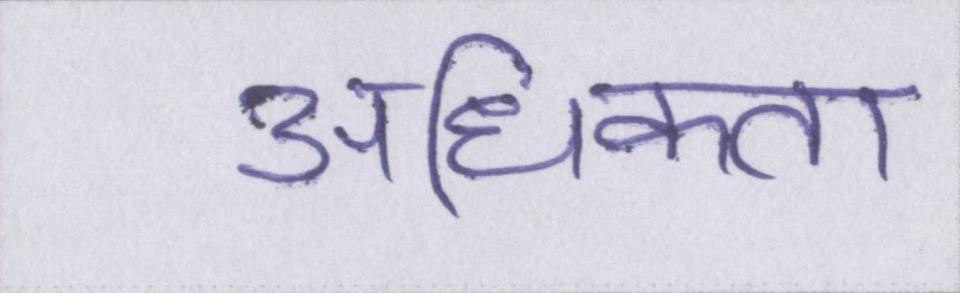 अधिकता